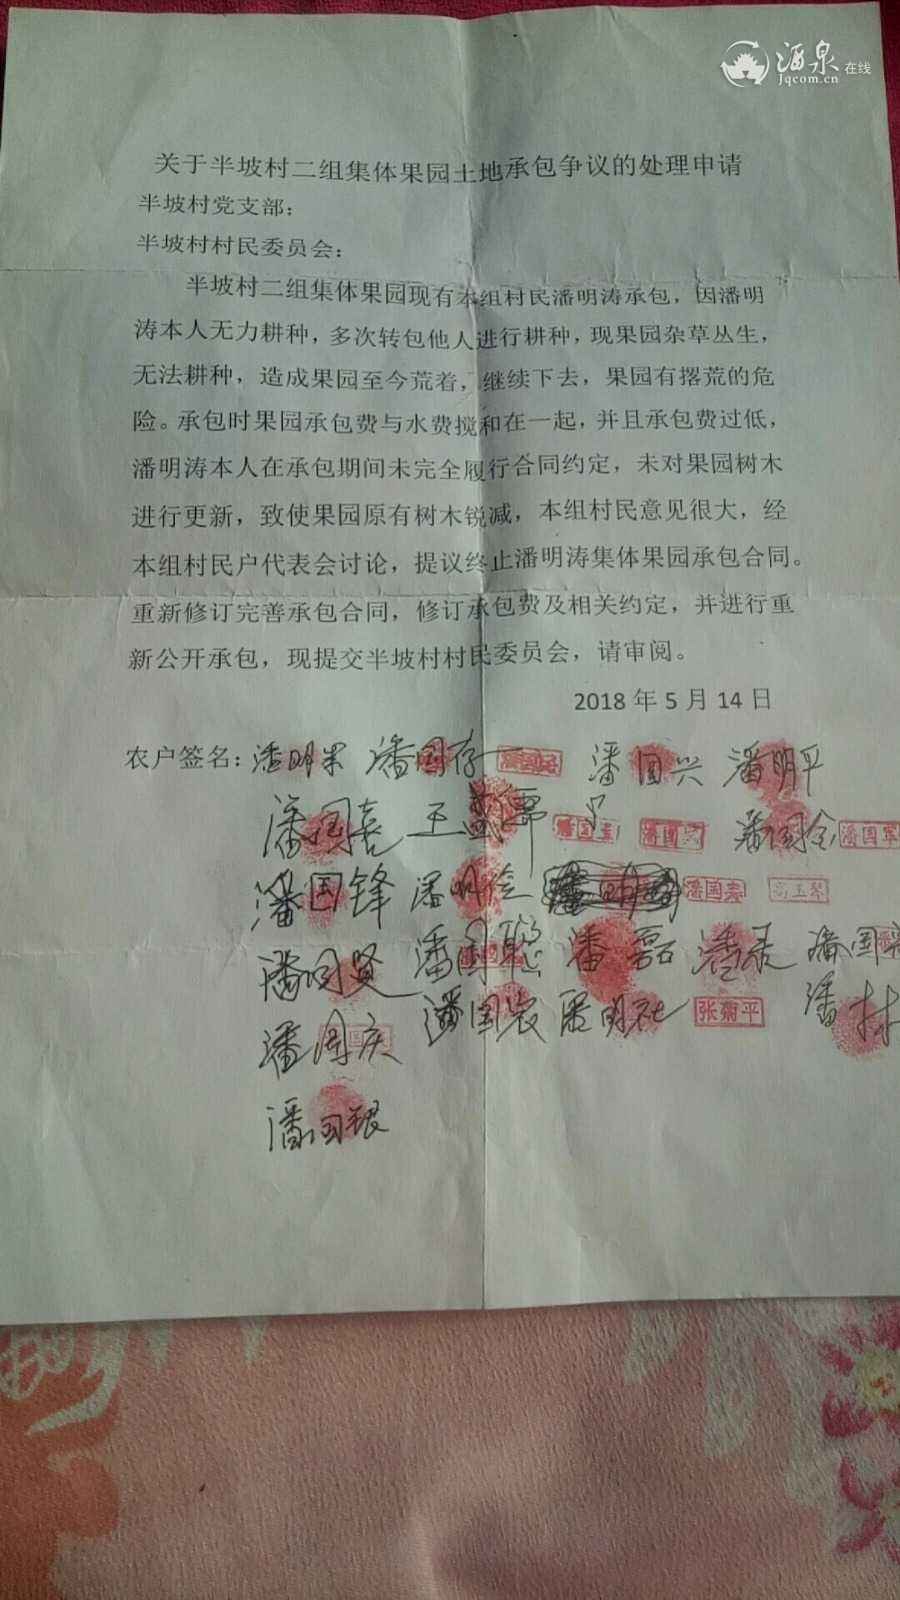 酒泉在线
Jqcom.cn
关于半坡村二组集体果园土地承包争议的处理申请
半坡村党支部：
半坡村村民委员会：
半坡村二组集体果园现有本组村民潘明涛承包，因潘明
涛本人无力耕种，多次转包他人进行耕种，现果园杂草丛生，
无法耕种，造成果园至今荒着，继续下去，果园有撂荒的危
险。承包时果园承包费与水费搅和在一起，并且承包费过低，
潘明涛本人在承包期间未完全履行合同约定，未对果园树木
进行更新，致使果园原有树木锐减，本组村民意见很大，经
本组村民户代表会讨论，提议终止潘明涛集体果园承包合同。
重新修订完善承包合同，修订承包费及相关约定，并进行重
新公开承包，现提交半坡村村民委员会，请审阅。
2018年5月14日
农户签名：潘明 潘国存 潘国兴 潘明平
潘国喜 王 潘国金 潘国军
潘国锋 潘明 潘国 高玉琴
潘国贤 潘国联 潘磊 潘 潘国
潘国庆 潘国农 明社 张菊平 潘林
潘国银